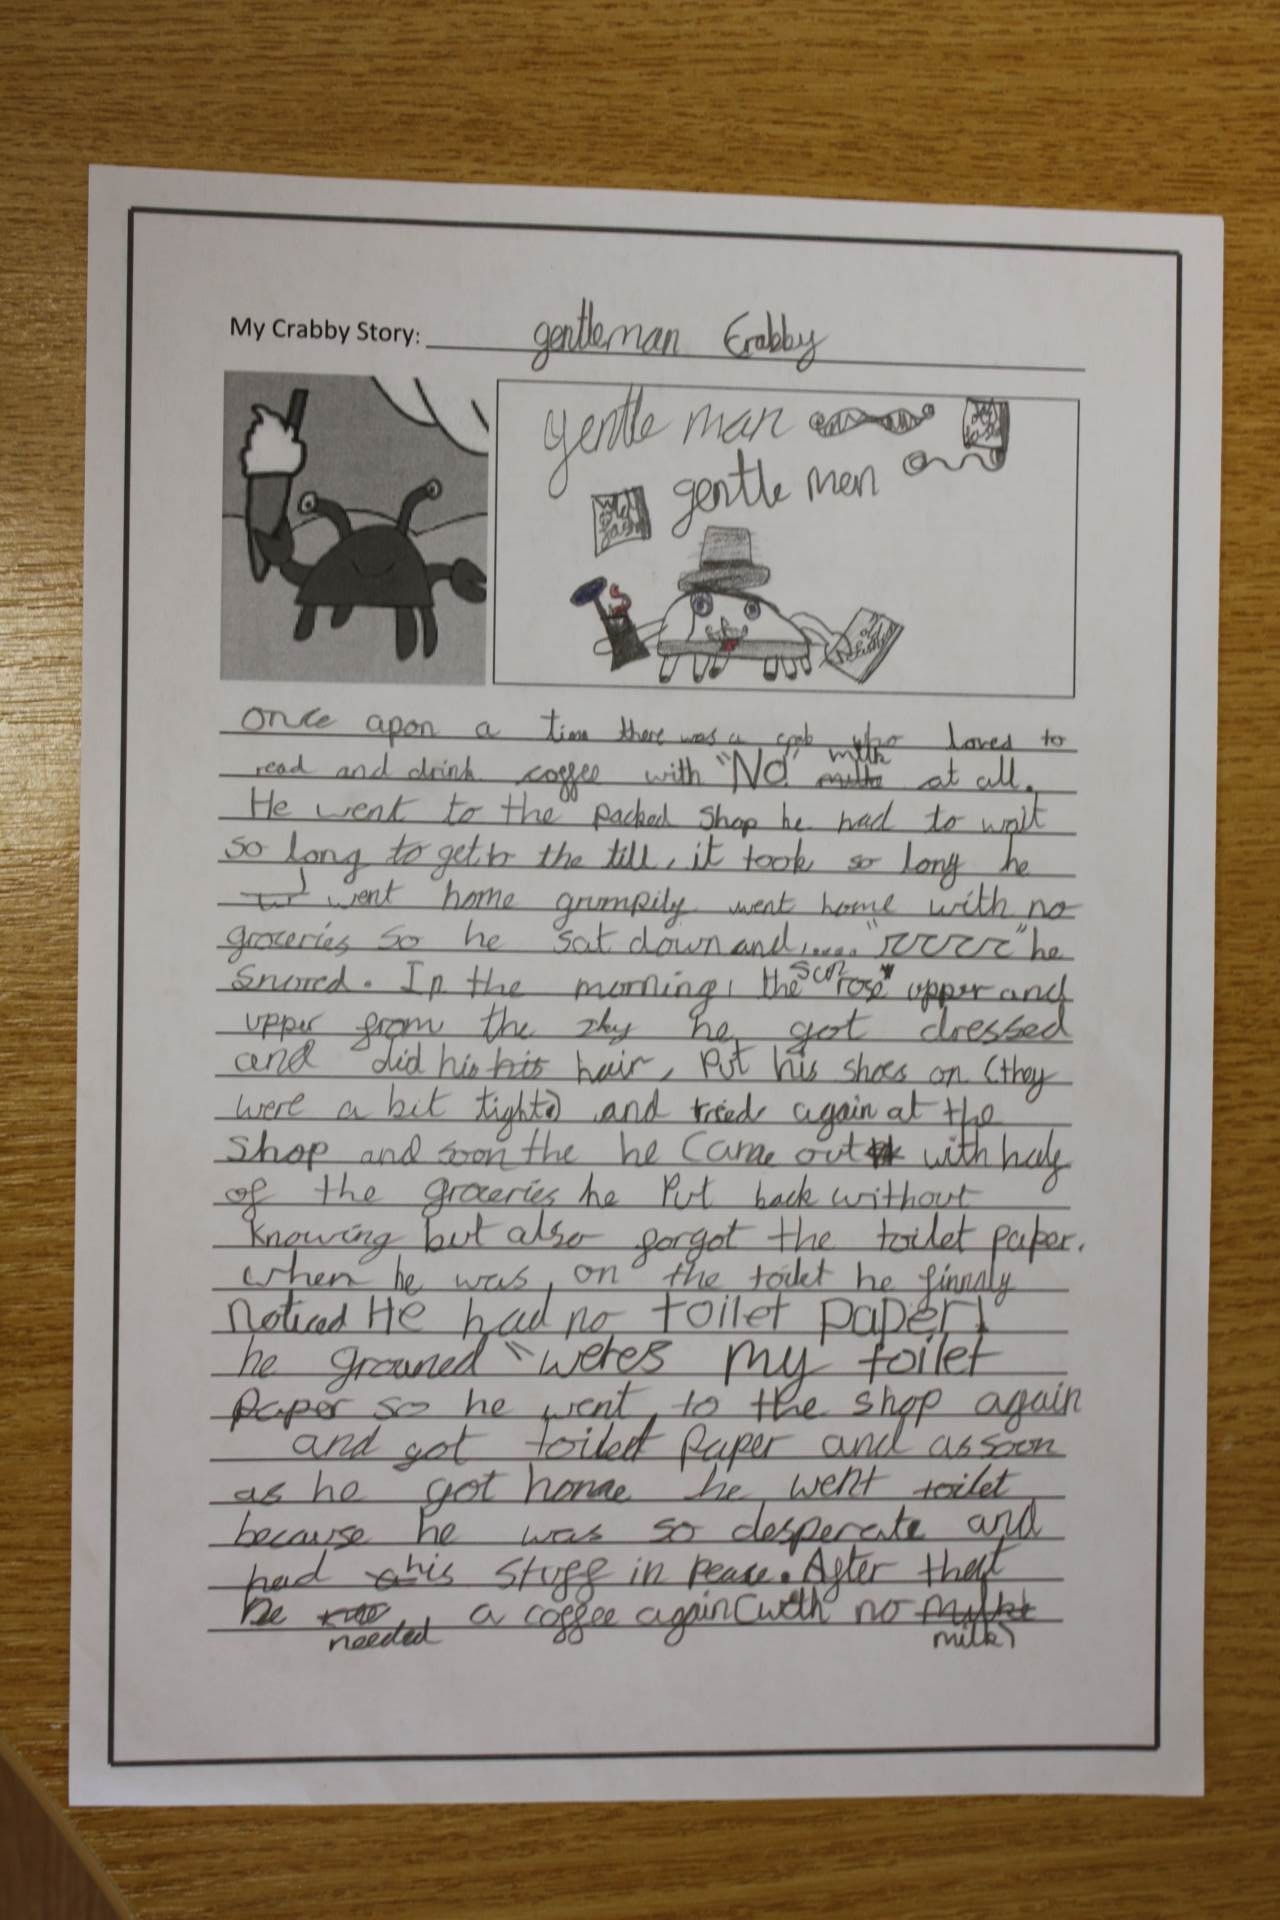 My Crabby Story: gentleman Crabby
gentle man
gentle men
old
fashi
old
old
once apon a time there was a crab who loved to
read and drink coffee with "No" milk at all.
He went to the packed shop he had to wait
so long to get to the till, it took so long he
went home grumpily went home with no
groceries so he sat down and..... "rrrrr" he
snored. In the morning, the sun rose upper and
upper from the sky he got dressed
and did his his hair, put his shoes on (they
were a bit tight) and tried again at the
shop and soon the he came out with half
of the groceries he put back without
knowing but also forgot the toilet paper.
when he was on the toilet he finnaly
noticed He had no toilet paper!
he grouned "weres my toilet
paper so he went to the shop again
and got toilet paper and as soon
as he got home he went toilet
because he was so desperate and
had his stuff in peace. After that
he needed a coffee again (with no milk)